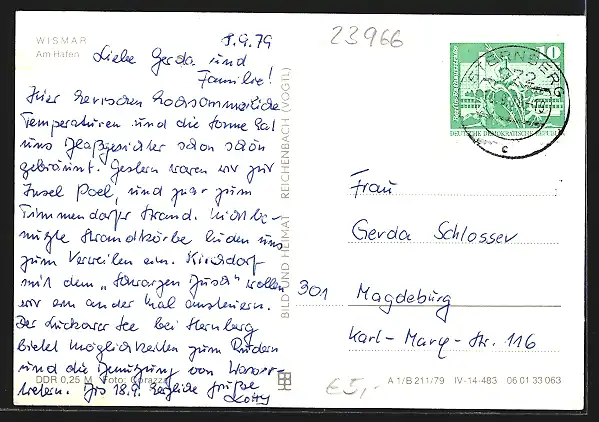 WISMAR
Am Hafen
8.9.79
23966
Liebe Gerda und
Familie!
Hier herrschen hochsommerliche
Temperaturen und die Sonne hat
uns Blaßgesichter schon schön
gebräunt. Gestern waren wir zur
Insel Poel, und zwar zum
Timmendorfer Strand. Nicht be-
nutzte Strandkörbe luden uns
zum Verweilen ein. Kirchdorf
mit dem "Schwarzen Busch" wollen
wir ein ander Mal ansteuern.
Der Luckower See bei Sternberg
bietet Möglichkeiten zum Rudern
und die Benutzung von Wasser-
tretern. Bis 18.9. herzliche Grüße
DDR 0,25 M Foto: Corazza
BILD UND HEIMAT REICHENBACH (VOGTL)
10
DEUTSCHE DEMOKRATISCHE REPUBLIK
STERNBERG
272
c
Frau
Gerda Schlosser
301 Magdeburg
Karl-Marx-Str. 116
€5,-
A 1/B 211/79 IV-14-483 06 01 33 063